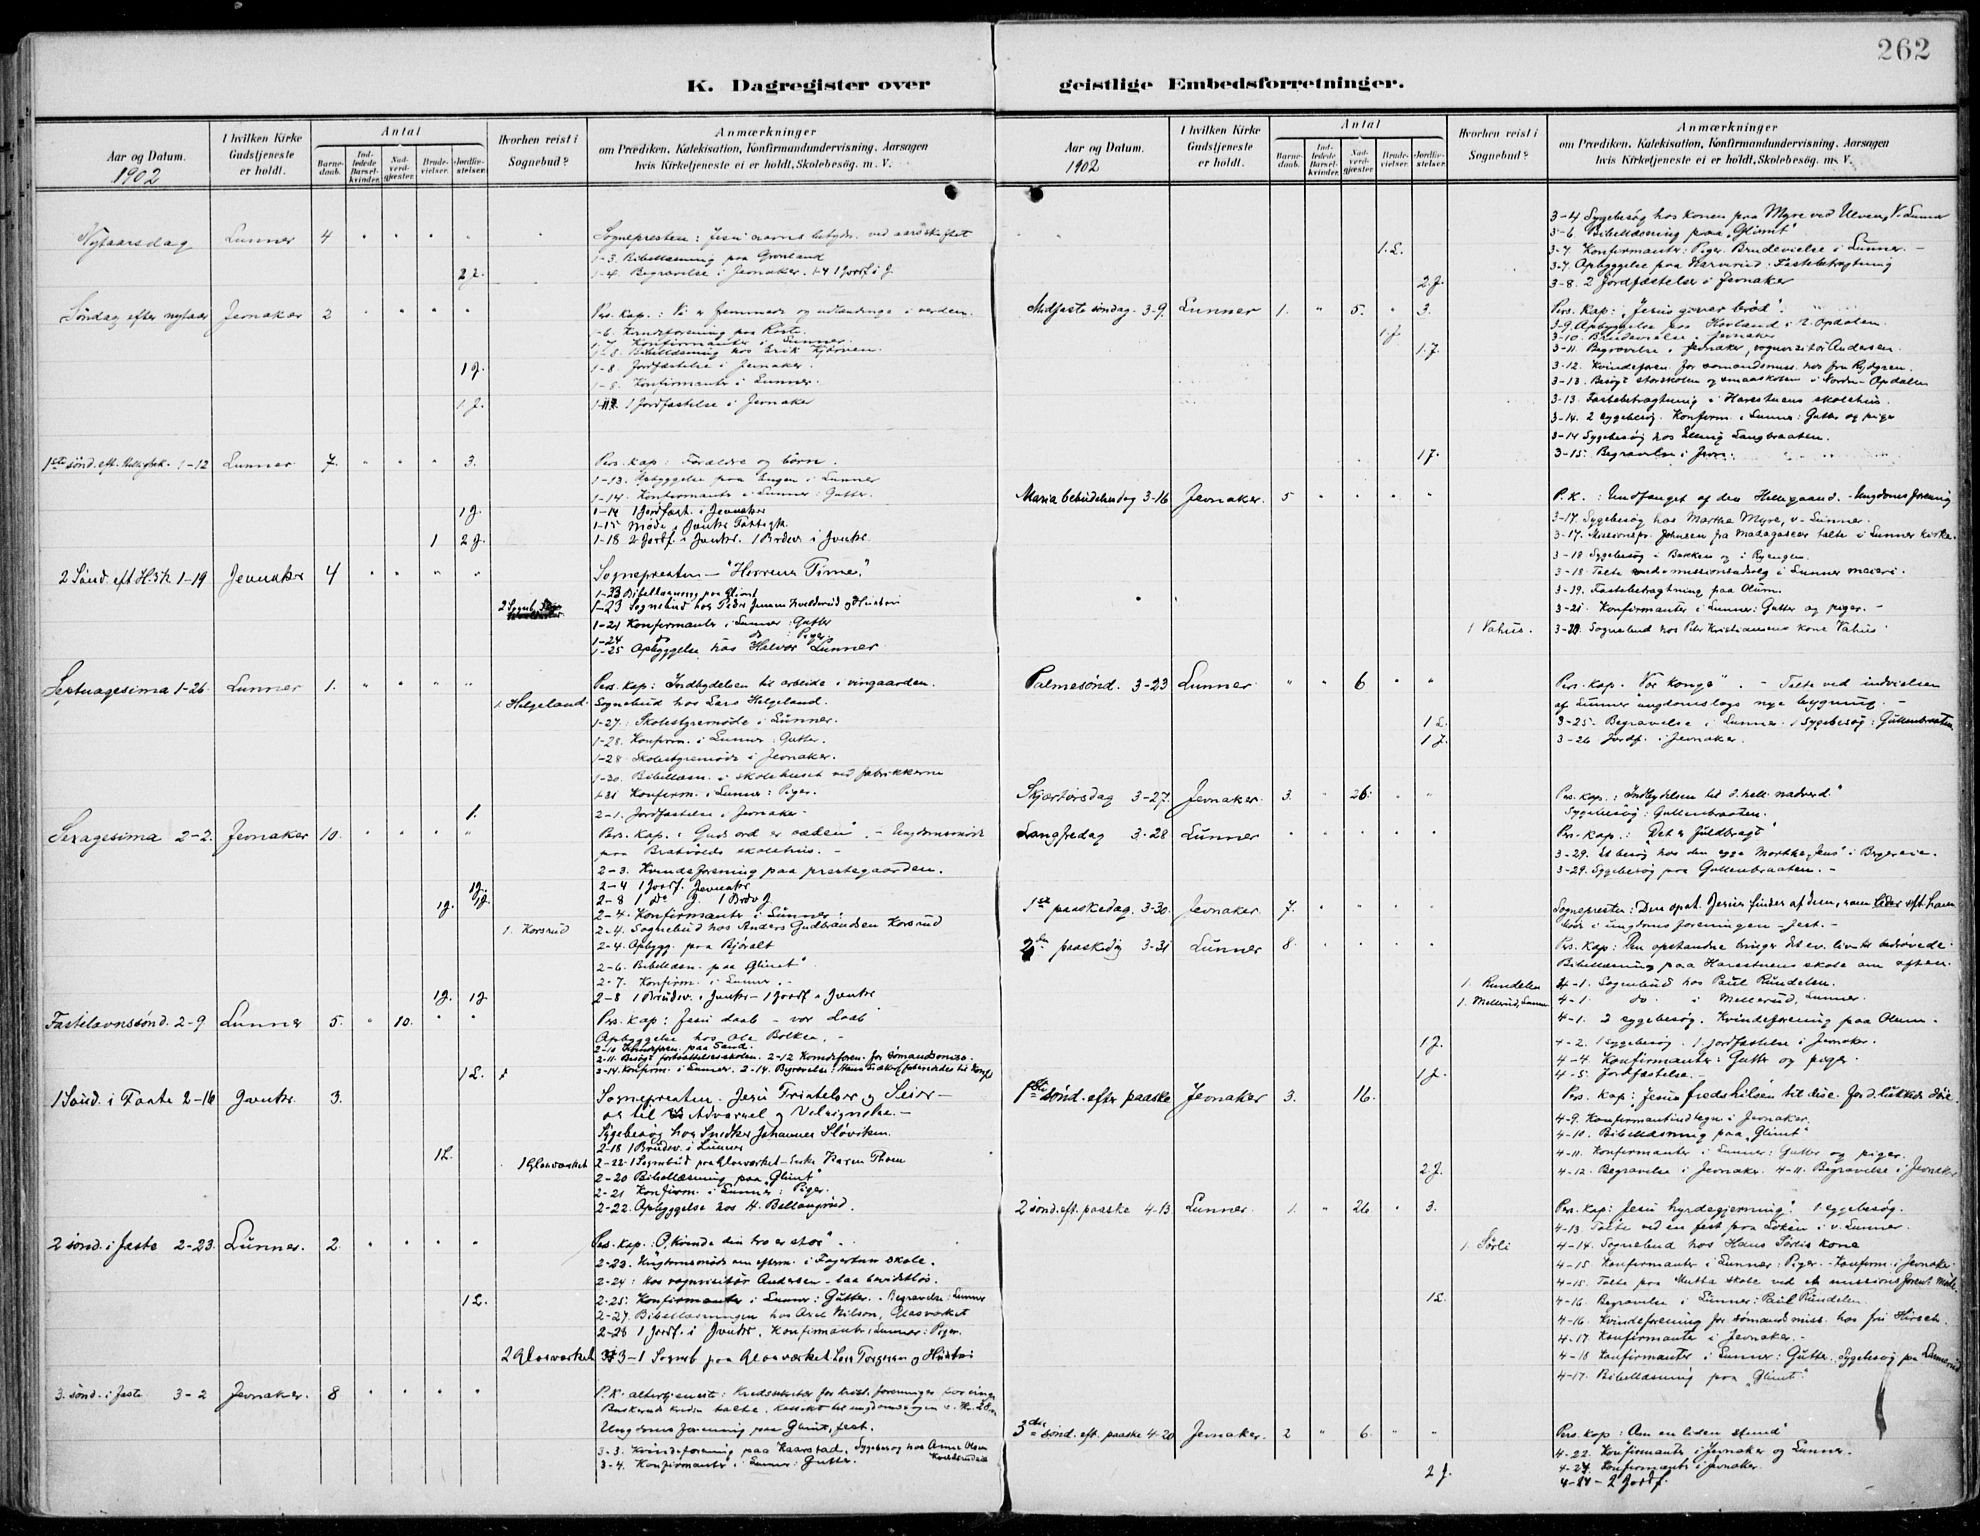 262
K. Dagregister over geistlige Embedsforretninger.
Aar og Datum. 1902
I hvilken Kirke Gudstjeneste er holdt.
Antal
Barnedaab.
Indledede Barselkvinder.
Nadverdgjester
Brudevielser.
Jordfæstelser.
Hvorhen reist i Sognebud?
Anmærkninger
om Prædiken, Katekisation, Konfirmandundervisning, Aarsagen
hvis Kirketjeneste ei er holdt, Skolebesøg. m. V.
Nytaarsdag Lunner 4 Sognepresten: Jesu navns betydn. ved aarsskiftet
1-3. Bibellæsning paa Grønland
22. 1-4. Begravelse i Jevnaker. 1-4 1 Jordf. i J.
Søndag efter nytaar Jevnaker 2 Pers. Kap.: Vi er fremmede og udlændinge i verden.
1-6. Kvindeforening paa
1-7. Konfirmanter i Lunner.
1-8. Bibellæsning hos Erik
1 J. 1-8. Jordfæstelse i Jevnaker.
1-8. Konfirmanter i Lunner.
1 J. 1 Jordfæstelse i Jevnaker
1ste sønd. eft. Helligtrek. 1-12 Lunner 7. 3. Pers. Kap: Forældre og børn.
1-13. Opbyggelse paa Engen i Lunner
1-14. Konfirmanter i Lunner: Gutter.
1 J. 1-14 1 Jordfæst. i Jevnaker
1-15 Møde i Jvnkr Fattigk.
1 2 J. 1-18 2 Jordf. i Jvnkr. 1 Brdev. i Jvnkr.
2 Sønd. eft H.3K 1-19 Jevnaker 4 Sognepresten — "Herrens Time".
1-23 Bibellæsning paa Glimt
2 Sogneb. 1-23 Sognebud hos Peder Jensen og Hustru
1-21 Konfirmanter i Lunner: Gutter
1-24 do : Piger
1-25 Opbyggelse hos Halvor Lunner
Septuagesima 1-26. Lunner 1. Pers. Kap: Indbydelsen til arbeide i vingaarden.
1. Helgeland. Sognebud hos Lars Helgeland.
1-27. Skolestyremøde i Lunner.
1-28. Konfirm. i Lunner: Gutter.
1-28 Skolestyremøde i Jevnaker.
1-30. Bibellæsn. i skolehuset ved fabrikkerne
1-31 Konfirm. i Lunner: Piger.
1. 2-1. Jordfæstelse i Jevnaker
Sexagesima 2-2. Jevnaker 10. Pers. Kap.: Guds ord er sæden". - Ungdomsmøde
paa Bratvolds skolehus. -
2-3. Kvindeforening paa prestegaarden.
1 J. 2-4 1 Jordf. Jevnaker
1 J. 1 J. 2-8 1 Do J. 1 Brdv J.
2-4. Konfirmanter i Lunner.
1. Korsrud 2-4. Sognebud hos Anders Gudbrandsen Korsrud
2-4. Opbygg. paa
2-6. Bibellæsn. paa Glimt"
2-7. Konfirm. i Lunner. -
1 J. 1 J. 2-8 1 Brudev. i Jvnkr - 1 Jordf i Jvnkr
Fastelavnssønd. 2-9 Lunner 5. 10. Pers. Kap: Jesu daab - vor daab
Opbyggelse hos Ole Bolken. -
2-10 Kvindeforen. paa Sand.
2-11. Besøgt fortsættelsesskolen. 2-12 Kvindeforen. for sømandsmiss.
1 L. 2-14. Konfirm. i Lunner. 2-14. Begravelse:
1 Sønd. i Faste 2-16 Jvnkr. 3. Sognepresten. Jesu Fristelser og Seier —
os til Advarsel og Velsignelse. —
Sygebesøg hos Snedker Johannes Sløviken.
1 L. 2-18 1 Brudev. i Lunner
1 Glasværket 2-22 1 Sognebud paa Glasværket - Enke Karen Thoen
2-20 Bibellæsning paa "Glimt"
2-21 Konfirm. i Lunner: Piger.
2-22. Opbyggelse hos H. Bellangrud.
2 sønd. i faste 2-23. Lunner. 2. Pers. Kap: O, Kvinde din tro er stor".
2-23. Ungdomsmøde om efterm. i Fagertun skole.
2-24: Hos vognvisitør Andersen - laa bevidstløs.
1 L. 2-25: Konfirmanter i Lunner: Gutter. - Begravelse: Lunner
2-27. Bibellæsningen hos Axel Nilson, Glasværket
2-28 1 Jordf. i Jvnkr. Konfirmanter i Lunner: Piger.
2 Glasværket 3-1 Sogneb. paa Glasværket og Hustru
3. sønd. i faste 3-2 Jevnaker. 8 P.K. altertjeneste:
Buskeruds kreds talte.
Ungdomsforening paa Glimt, fest.
3-3. Kvindeforening paa Kaarstad. Sygebesøg hos Anne Olsen
3-4. Konfirmanter i Lunner: Gutter.
Aar og Datum. 1902
I hvilken Kirke Gudstjeneste er holdt.
Antal
Barnedaab.
Indledede Barselkvinder.
Nadverdgjester
Brudevielser.
Jordfæstelser.
Hvorhen reist i Sognebud?
Anmærkninger
om Prædiken, Katekisation, Konfirmandundervisning, Aarsagen
hvis Kirketjeneste ei er holdt, Skolebesøg. m. V.
3-4 Sygebesøg hos konen paa Myre ved Ulven, V. Lunner
3-6 Bibellæsning paa "Glimt"
1. L. 3-7 Konfirmanter: Piger. Brudevielse i Lunner. -
3-7. Opbyggelse paa. Fastebetragtning
2. J. 3-8. 2 Jordfæstelser i Jevnaker
Midfaste søndag. 3-9. Lunner 1. 5. 3. Pers. Kap: "Jesus giver brød".
3-9. Opbyggelse paa Hovland i Ø. Opdalen.
1. J. 3-10. Brudevielse i Jevnaker
1. J. 3-11. Begravelse i Jevnaker, vognvisitør Andersen.
3-12. Kvindeforen. for sømandsmiss. hos fru Rydgren.
3-13. Besøgt storskolen og smaaskolen i Nordre Opdalen
3-13. Fastebetragtning i Harestuens skolehus.
3-14. 2 sygebesøg. Konfirm. i Lunner: Gutter og piger
3-14 Sygebesøg hos Elling Langbraaten.
1 J. 3-15. Begravelse i Jevn.
Maria bebudelsesdag 3-16 Jevnaker. 5 P.K.: Undfanget af den Helligaand. - Ungdomsforening
3-17. Sygebesøg hos Marthe Myre, v. Lunner.
3-17. Missionspr. Johnsen fra Madagascar talte i Lunner kirke.
3-18 Sygebesøg i Bakken og i Ryengen.
3-18. Talte ved missionsudsalg i Lunner meieri.
3-19. Fastebetragtning paa Olum.
3-21. Konfirmanter i Lunner: Gutter og piger. -
1 Vahus. 3-20. Sognebud hos Peter Kristiansens kone Vahus
Palmesønd. 3-23 Lunner 6 Pers. Kap. "Vor Konge". - Talte ved indvielsen
af Lunner ungdomslags nye bygning. -
1 L. 3-25- Begravelse i Lunner. 1 Sygebesøg: Gullenbraaten
1 J. 3-26 Jordf. i Jevnaker.
Skjærtorsdag 3-27. Jevnaker. 3. 26. Pers. Kap.: "Indbydelsen til d. hell. nadverd."
Sygebesøg: Gullenbraaten.
Langfredag 3-28 Lunner Pers. Kap.: "Det er fuldbragt"
3-29. Et besøg hos den syge i Bergereie.
3-29. Sygebesøg paa Gullenbraaten. -
1ste paaskedag. 3-30. Jevnaker. 7. Sognepresten: Den opst. Jesus findes af dem, som leder eft. ham
i ungdomsforeningen - fest. -
2den paaskedag 3-31 Lunner 8. Pers. Kap: Den opstandne bringer det ev. liv til bedrøvede.
Bibellæsning paa Harestuens skole om aften.
1. Rundelen 4-1. Sognebud hos Paul Rundelen.
1. Mellerud, Lunner 4-1. do. i Mellerud, Lunner.
4-1. 2 sygebesøg. Kvindeforening paa Olum.
1 J. 4-2. 1 sygebesøg. 1 Jordfæstelse i Jevnaker.
4-4. Konfirmanter: Gutter og piger.
1 J. 4-5. Jordfæstelse. -
1ste sønd. efter paaske Jevnaker 3. 16. Pers. Kap: "Jesus fredshilsen til disc.
4-9. Konfirmantindtegn. i Jevnaker.
4-10. Bibellæsning paa "Glimt"
4-11. Konfirmanter i Lunner: Gutter og piger.
2 J. 4-12. Begravelse i Jevnaker. 4-11. Begravelse i Jevnaker
2 sønd. eft. paaske 4-13 Lunner. 1. 26 3. Pers. Kap: Jesu hyrdegjerning". 1 sygebesøg.
4-13 Talte ved en fest paa Loken i v. Lunner.
1. Sørli 4-14. Sognebud hos Hans Sørlis kone
4-15 Konfirmanter i Lunner: Piger. - Konfirm. i Jevnaker
4-15. Talte paa Mutta skole ved et missionsforent. møde
1 L. 4-16. Begravelse i Lunner: Paul Rundelen.
4-16. Kvindeforening for sømandsmiss. hos fru Hirsch.
4-17. Konfirmanter i Jevnaker. -
4-18 Konfirmanter i Lunner: Gutter. Sygebesøg paa
4-17. Bibellæsning paa "Glimt".
3die sønd. eft. paaske 4-20 Jevnaker. 2 6. Pers. Kap: Om en liden stund"
4-22. Konfirmanter i Jevnaker og Lunner.
4-24. Konfirmanter i Jevnaker.
2 J. 2 Jordf.